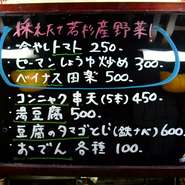 採れたて若杉産野菜!
冷やしトマト 250.
ピーマンしょうゆ炒め 300.
ベイナス田楽 500.
コンニャク串天(5本) 450.
湯豆腐 500.
豆腐のタマゴとじ(鉄ナベ) 600.
おでん 各種 100.